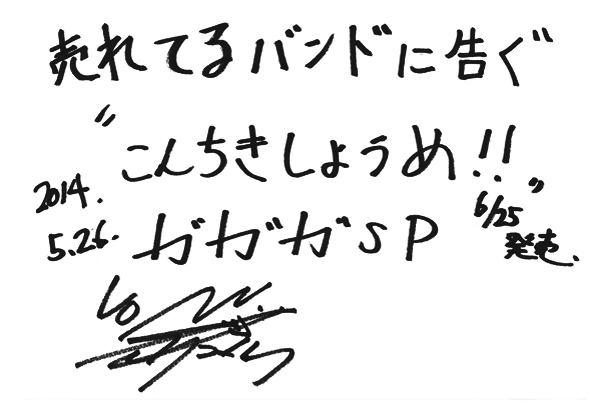 売れてるバンドに告ぐ
"こんちきしょうめ!!"
2014.
5.26.
ガガガSP
6/25
発売.